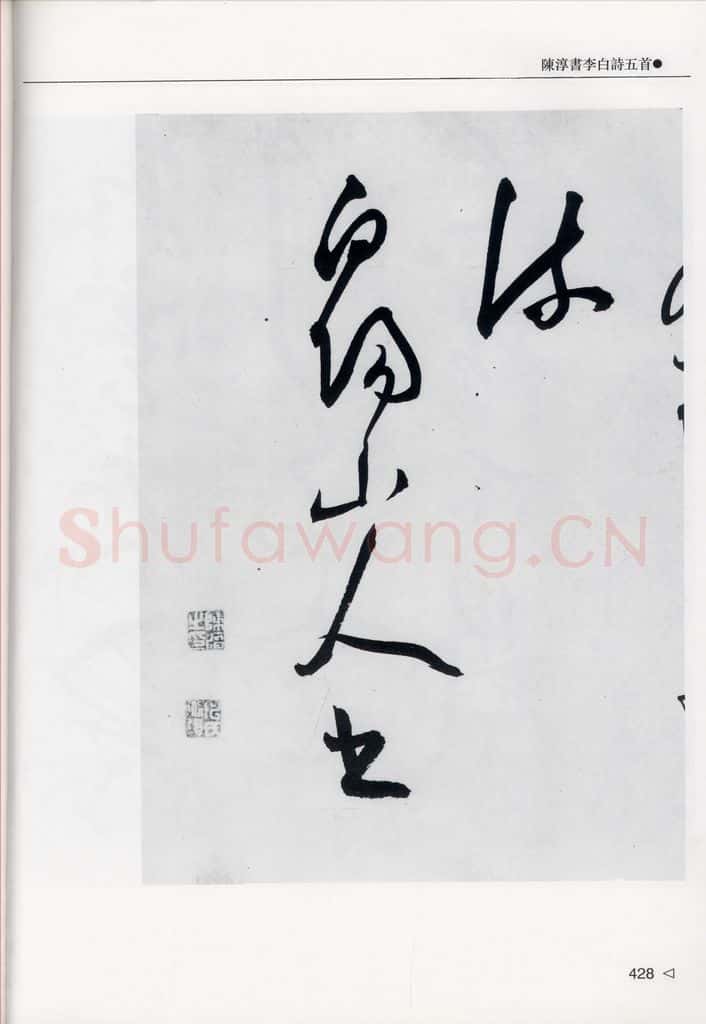 陳淳書李白詩五首●
白陽山人書
Shufawang.CN
428 ◁